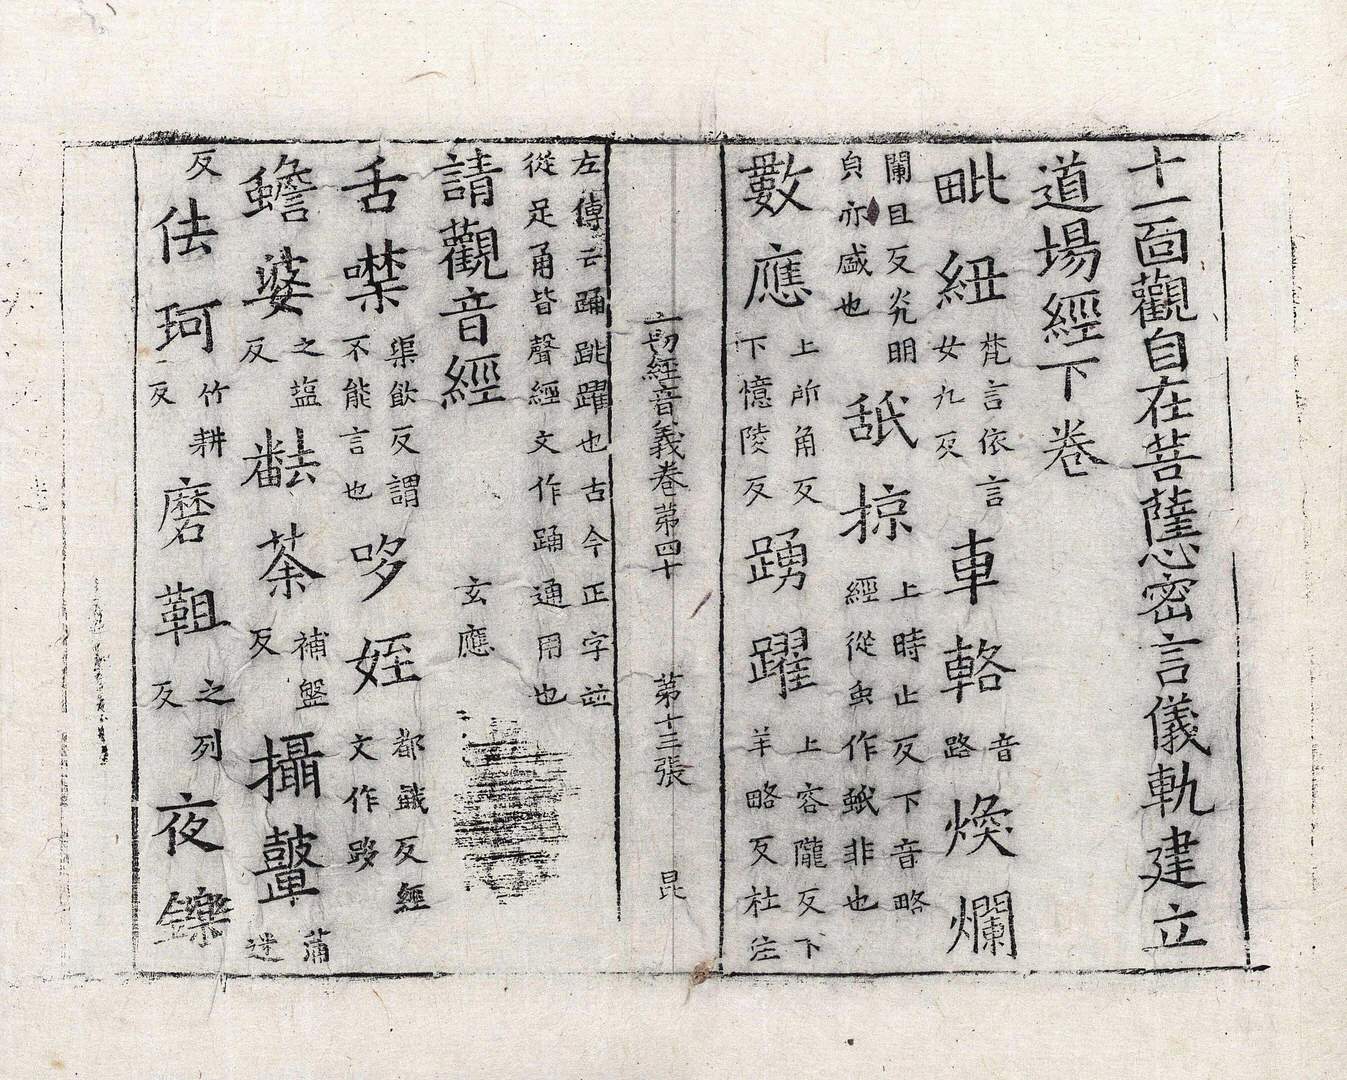 十一面觀自在菩薩心密言儀軌建立
道場經下卷
毗紐梵言依言女九反車輅音路煥爛
闌旦反光明皃亦盛也舐掠上時止反下音略經從虫作蛾非也
數應上所角反下憶陵反踴躍上容隴反下羊略反杜注
一切經音義卷第四十 第十三張 昆
左傳云踊跳躍也古今正字並從足甬皆聲經文作踊通用也
請觀音經 玄應
舌噤渠飲反謂不能言也哆姪都截反經文作跢
蟾婆之塩反荼補盤反攝鼙蒲迷
反佉珂竹耕反磨之列反夜鑠